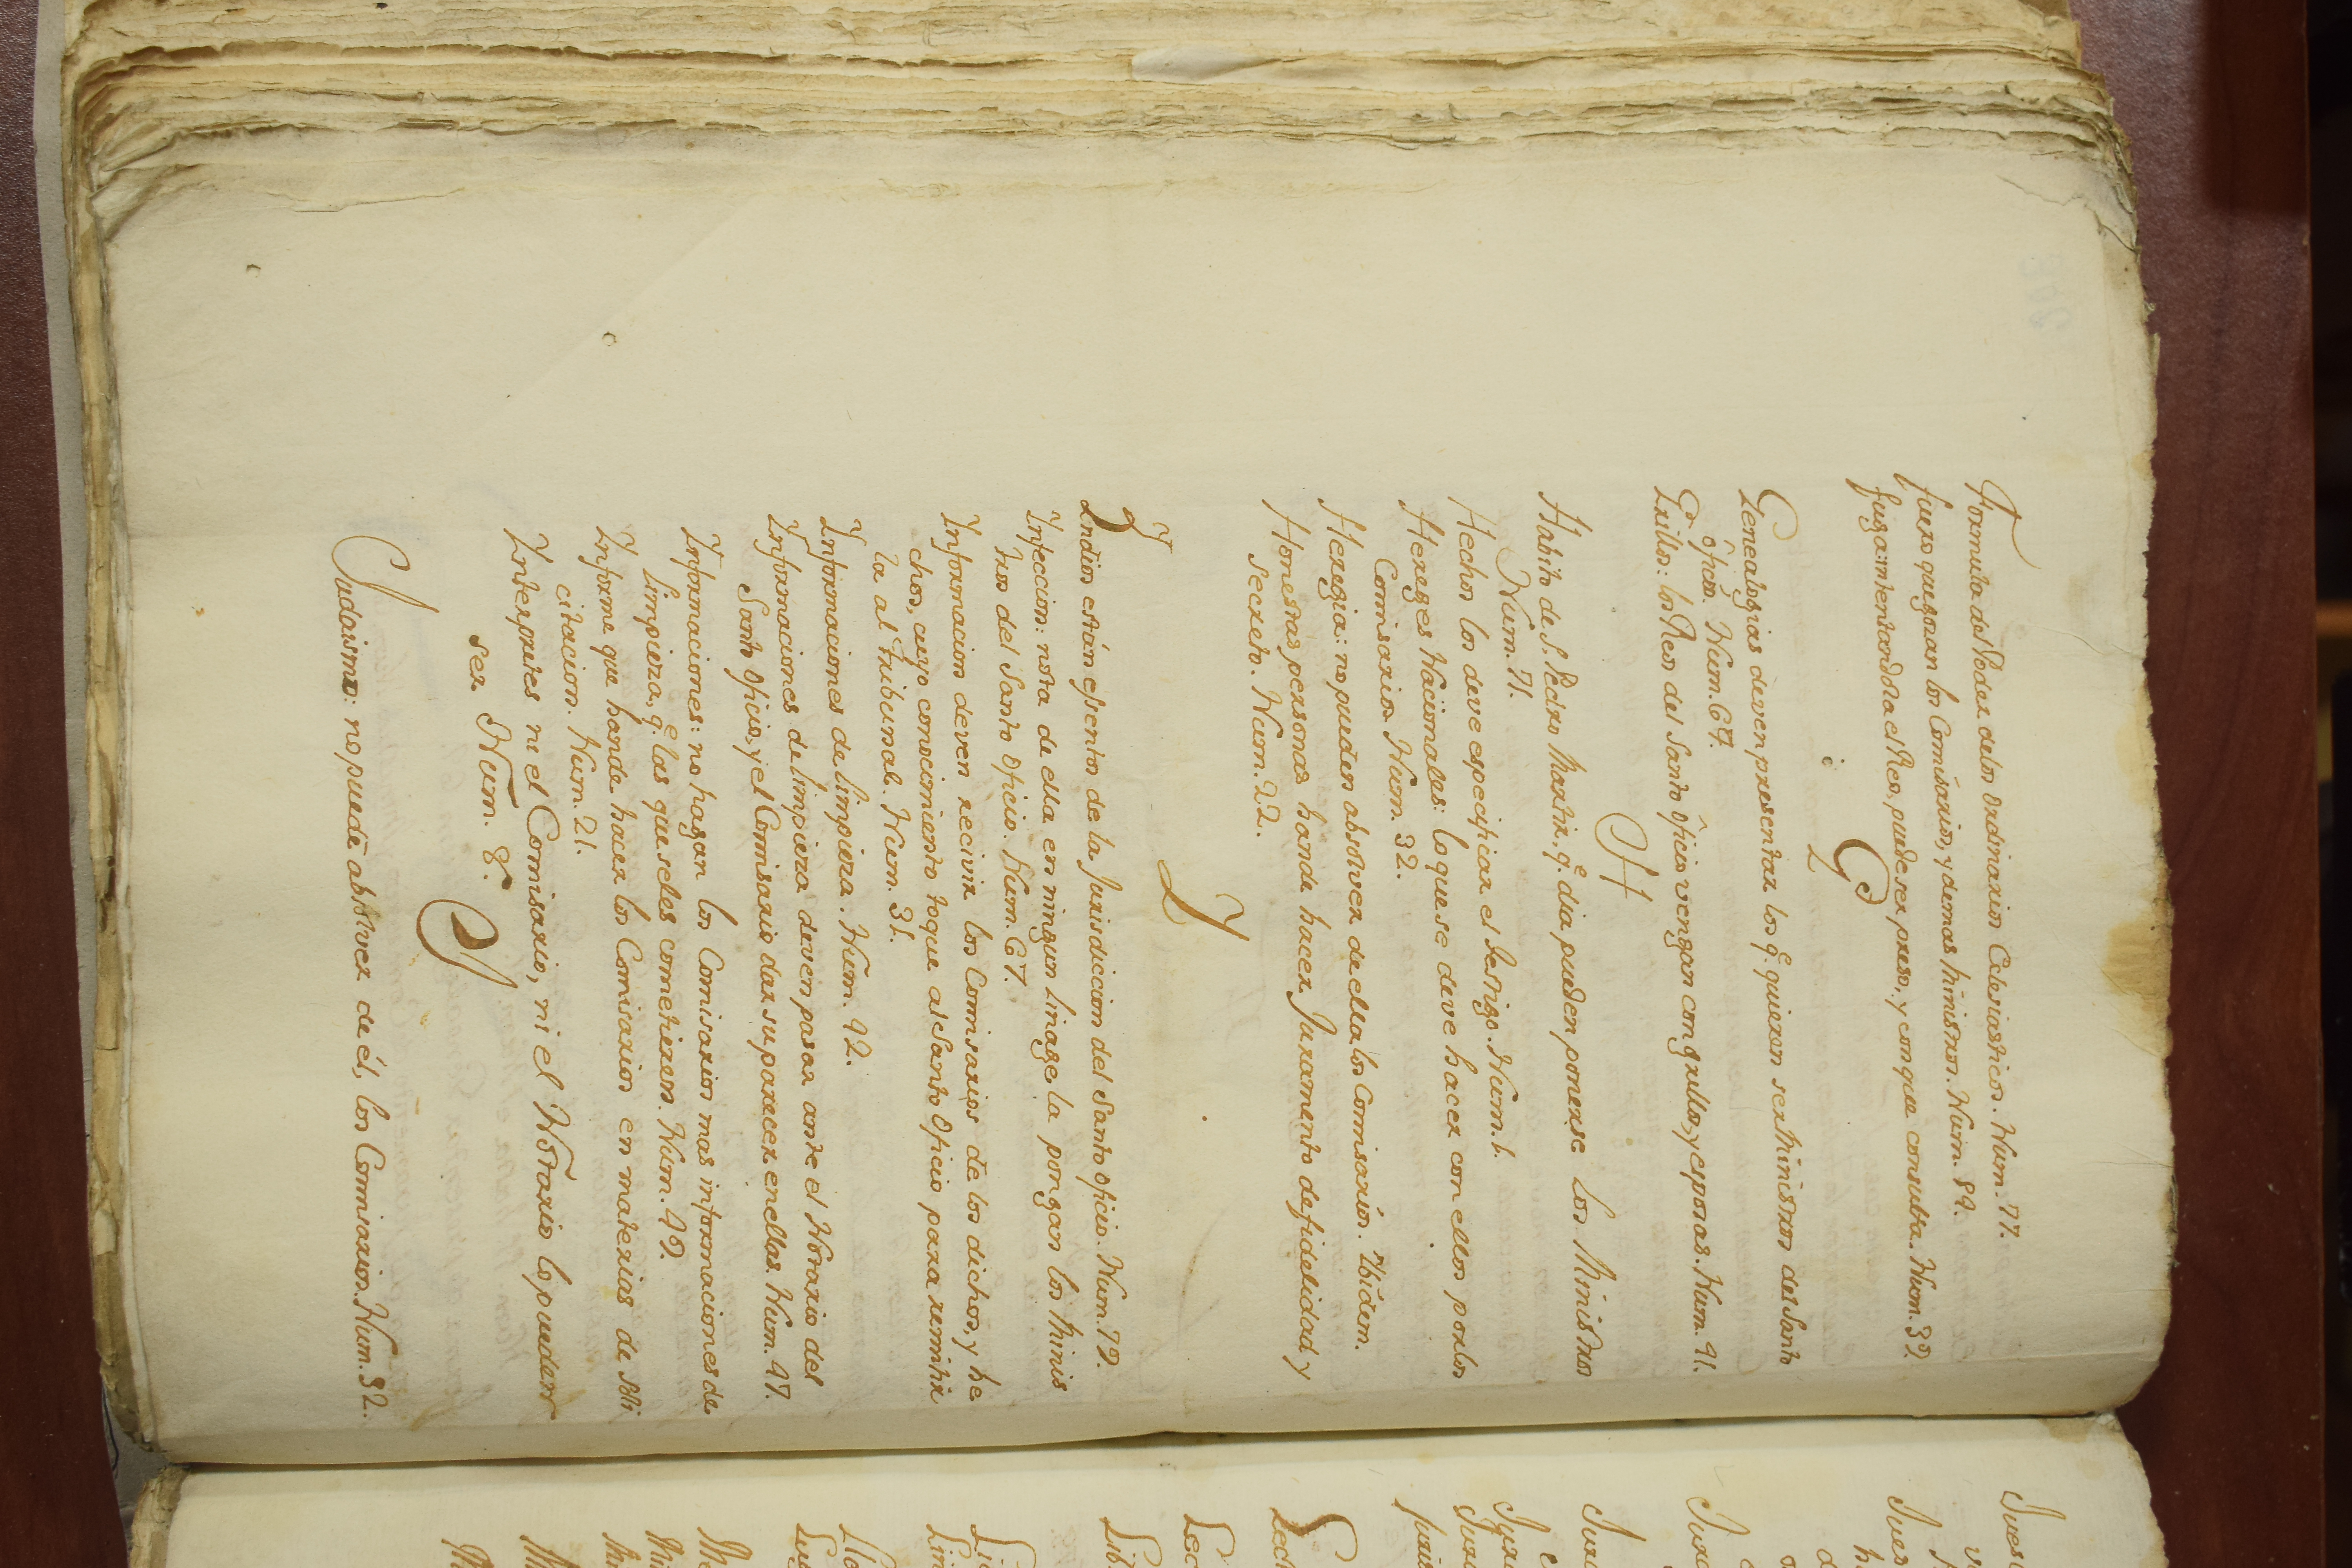 Formula del Poder delos Ordinarios Eclesiasticos. Num. 77.
fuero que gozan los Comisarios, y demas Ministros. Num. 89.
fuga: intentandola el Reo, puede ser preso, y con que consulta. Num. 39.
G
Genealogias deven presentar los q.e quieren ser Ministros del Santo
Oficio. Num. 67.
Grillos: los Reos del Santo Oficio vengan con grillos, y esposas. Num. 41.
H
Habito de S. Pedro Martir, q.e dia pueden ponerse los Ministros
Num. 71.
Hechos los deve especificar el testigo. Num. 1.
Hereges Nacionales: lo que se deve hacer con ellos por los
Comisarios. Num. 32.
Heregia: no pueden absolver de ella los Comisarios. Ibidem.
Honestas personas hande hacer Juramento de fidelidad y
secreto. Num. 22.
Y
Y
Indios están esentos de la Jurisdiccion del Santo Oficio. Num. 79.
Infeccion: nota de ella en ningun linage la pongan los Minis
tros del Santo Oficio. Num. 67.
Informacion deven recivir los Comisarios de los dichos, y he
chos, cuyo conocimiento toque al Santo Oficio para remitir
la al tribunal. Num. 31.
Informaciones de limpieza. Num. 42.
Informaciones de limpieza deven pasar ante el Notario del
Santo Oficio, y el Comisario dar su parecer en ellas. Num. 47.
Informaciones: no hagan los Comisarios mas informaciones de
limpieza, q.e las que seles cometieren. Num. 49.
Informe que hande hacer los Comisarios en materias de Mi
citacion. Num. 21.
Interpretes ni el Comisario, ni el Notario lo pueden
ser Num. 8.
J
Judaismo: no puede absolver de él, los Comisarios. Num. 32.